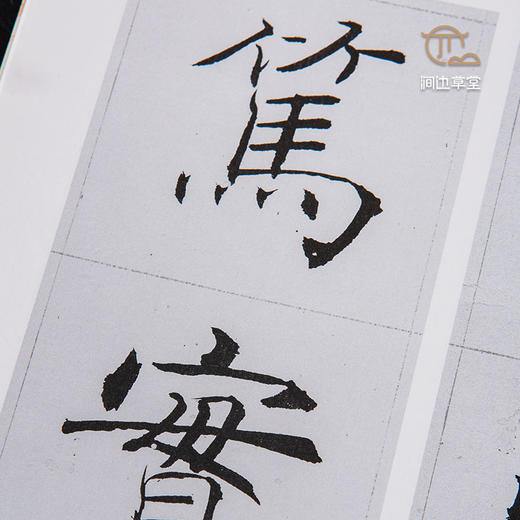 涧边草堂
篤
實